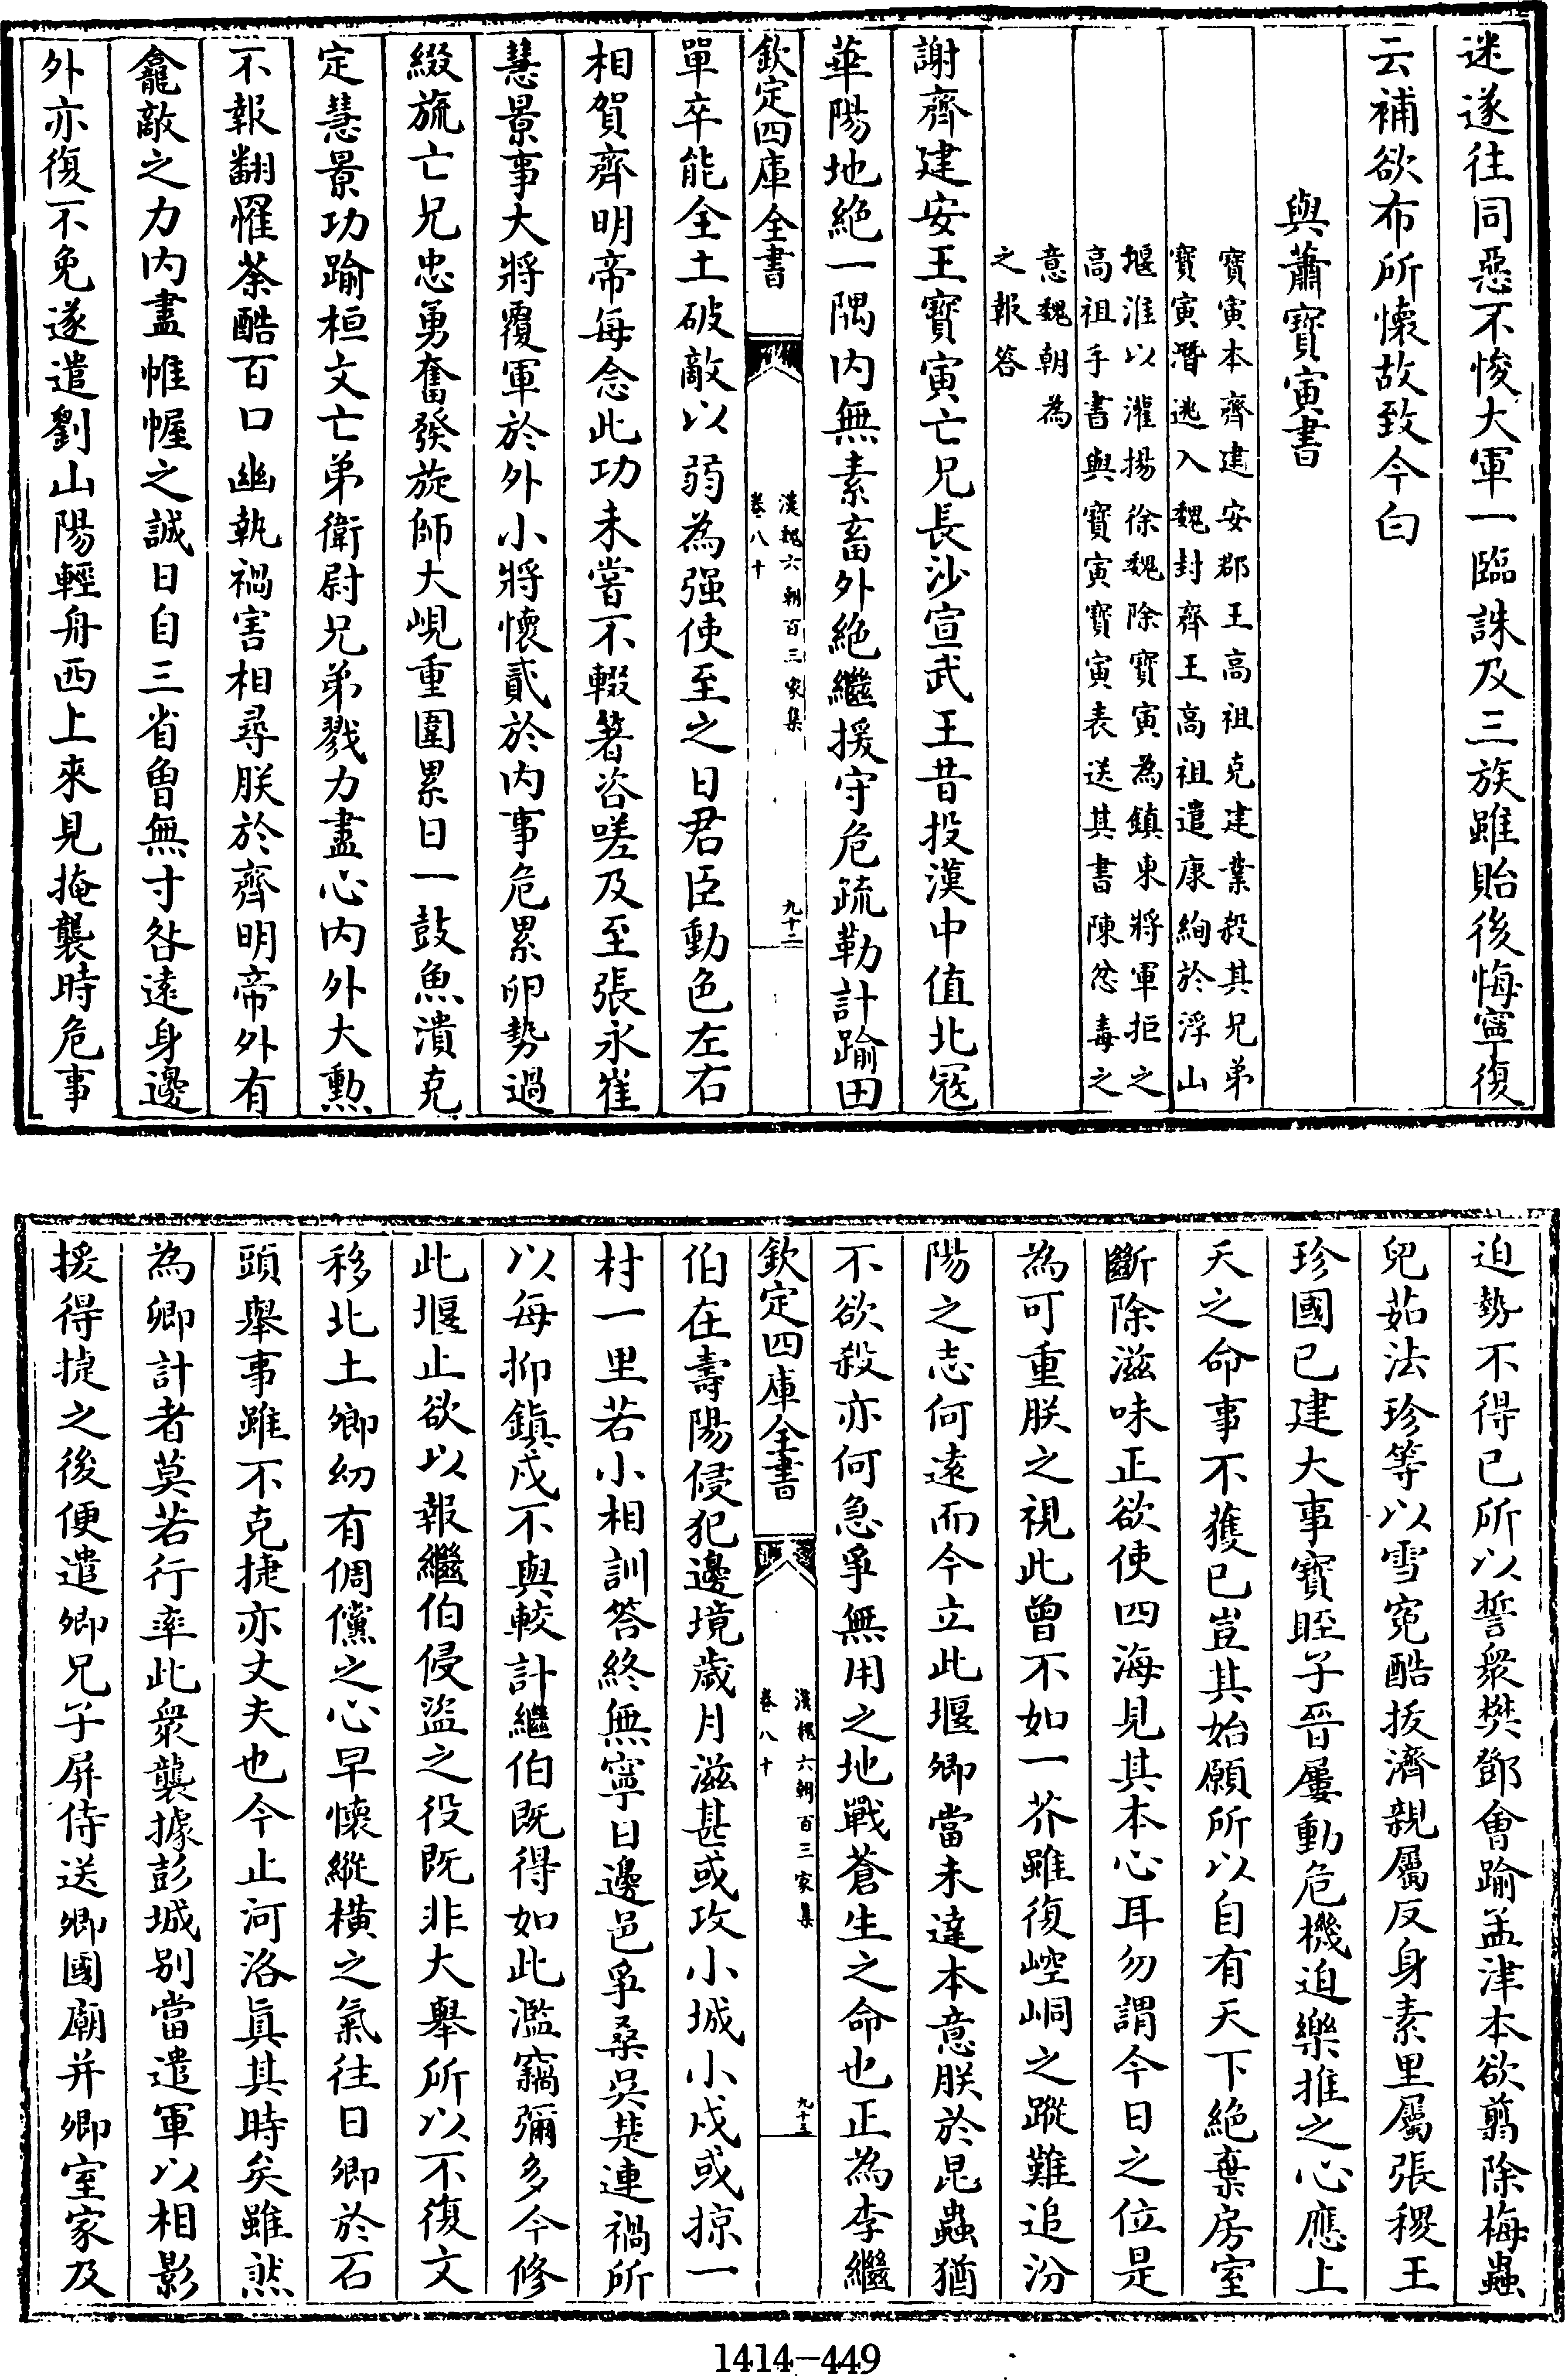 迷遂往同惡不悛大軍一臨誅及三族雖貽後悔寧復
云補欲布所懷故致今白
與蕭寶寅書
寶寅本齊建安郡王高祖克建業殺其兄弟
寶寅潛逃入魏封齊王高祖遣康絢於浮山
堰淮以灌揚徐魏除寶寅為鎮東將軍拒之
高祖手書與寶寅寶寅表送其書陳忿毒之
意魏朝為
之報答
謝齊建安王寶寅亡兄長沙宣武王昔投漢中值北寇
華陽地絕一隅内無素畜外絶繼援守危疏勒計踰田
欽定四庫全書
漢魏六朝百三家集
卷八十
九十二
單卒能全土破敵以弱為强使至之日君臣動色左右
相賀齊明帝每念此功未嘗不輟箸咨嗟及至張永崔
慧景事大將覆軍於外小將懷貳於内事危累卵勢過
綴旒亡兄忠勇奮發旋師大峴重圍累日一鼓魚潰克
定慧景功踰桓文亡弟衛尉兄弟戮力盡心内外大勲
不報翻罹荼酷百口幽執禍害相尋朕於齊明帝外有
龕敵之力内盡帷幄之誠日自三省曾無寸咎遠身邊
外亦復不免遂遣劉山陽輕舟西上來見掩襲時危事
迫勢不得已所以誓衆樊鄧會踰孟津本欲翦除梅蟲
兒茹法珍等以雪冤酷拔濟親屬反身素里屬張稷王
珍國已建大事寶晊子晉屢動危機迫樂推之心應上
天之命事不獲已豈其始願所以自有天下絶棄房室
斷除滋味正欲使四海見其本心耳勿謂今日之位是
為可重朕之視此曾不如一芥雖復崆峒之蹤難追汾
陽之志何遠而今立此堰卿當未達本意朕於昆蟲猶
不欲殺亦何急爭無用之地戰蒼生之命也正為李繼
欽定四庫全書
漢魏六朝百三家集
卷八十
九十三
伯在壽陽侵犯邊境歲月滋甚或攻小城小戍或掠一
村一里若小相訓答終無寧日邊邑爭桑吳楚連禍所
以每抑鎮戍不與較計繼伯既得如此濫竊彌多今修
此堰止欲以報繼伯侵盜之役既非大舉所以不復文
移北土卿幼有倜儻之心早懷縱横之氣往日卿於石
頭舉事雖不克捷亦丈夫也今止河洛眞其時矣雖然
為卿計者莫若行率此衆襲據彭城别當遣軍以相影
援得捷之後便遣卿兄子屏侍送卿國廟并卿室家及
1414-449